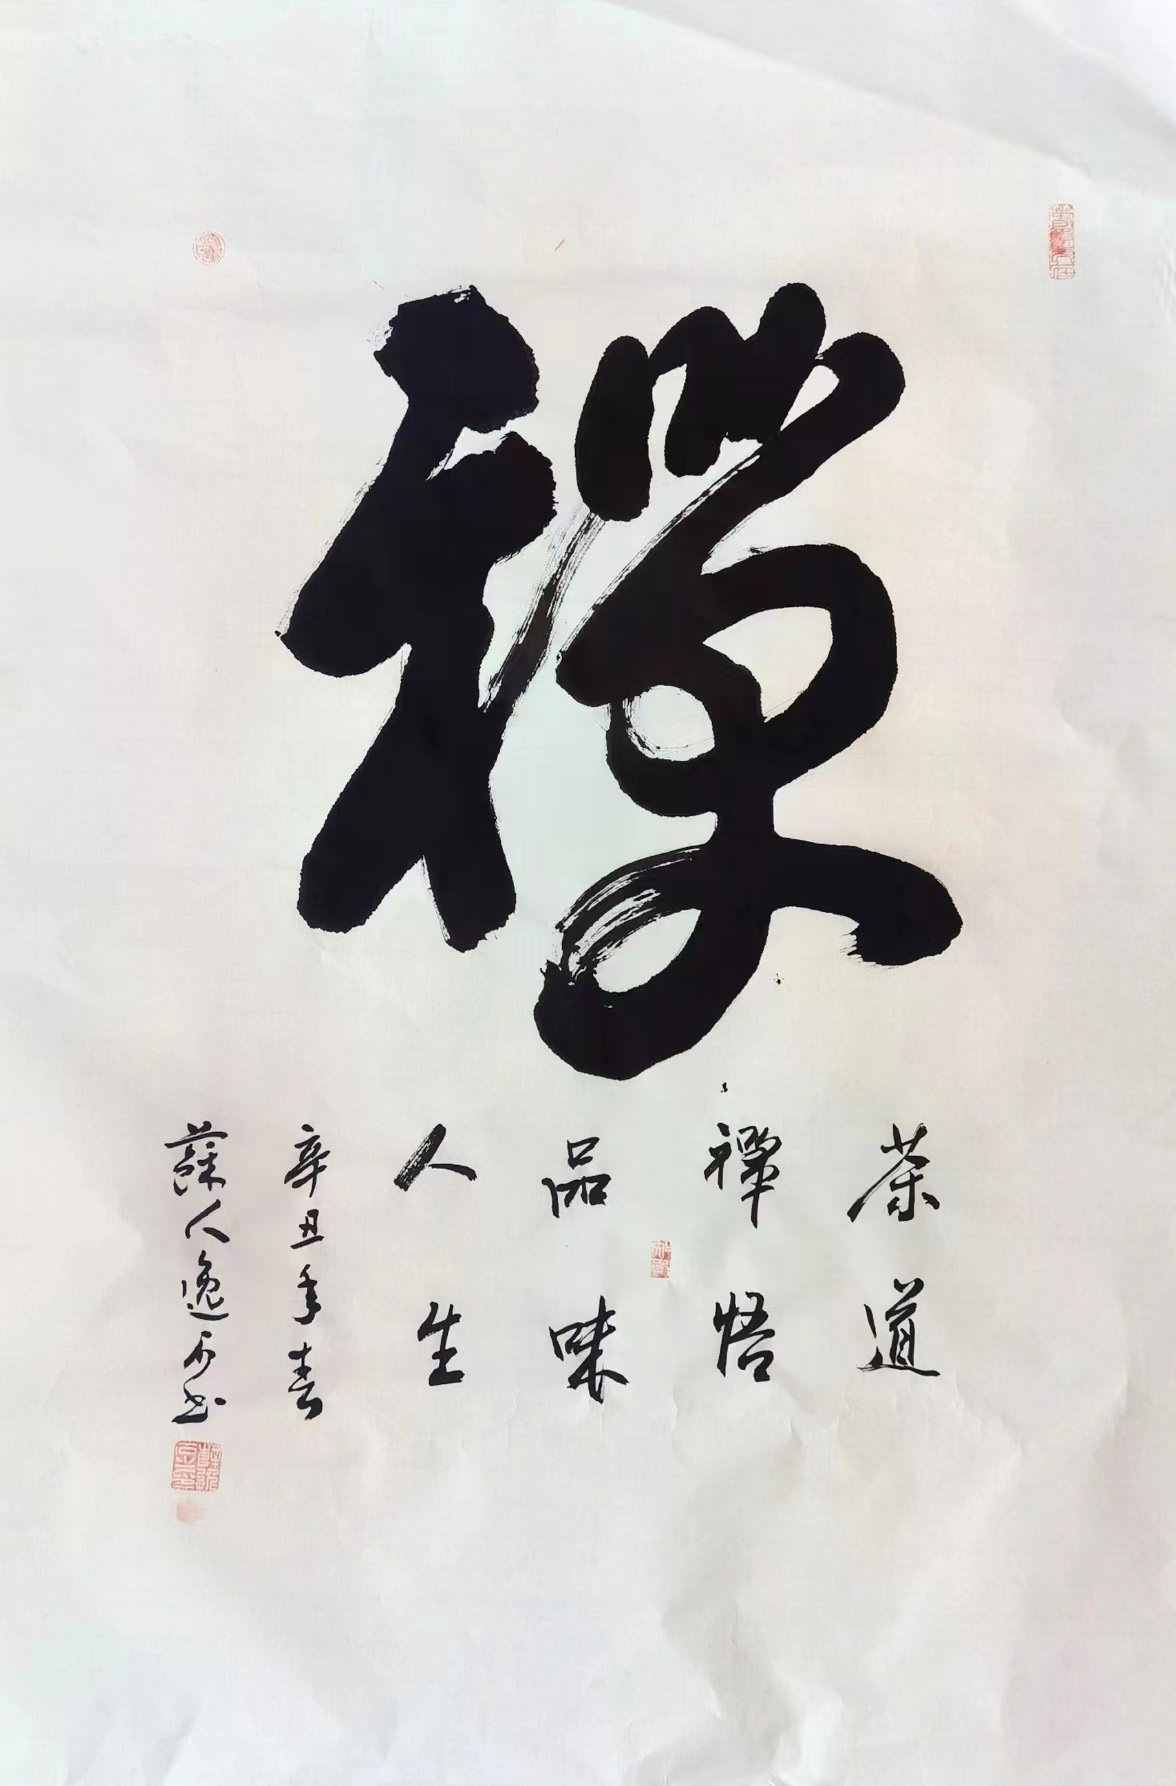 禪
茶道
禪悟
品味
人生
辛丑年春
蘇人逸石书